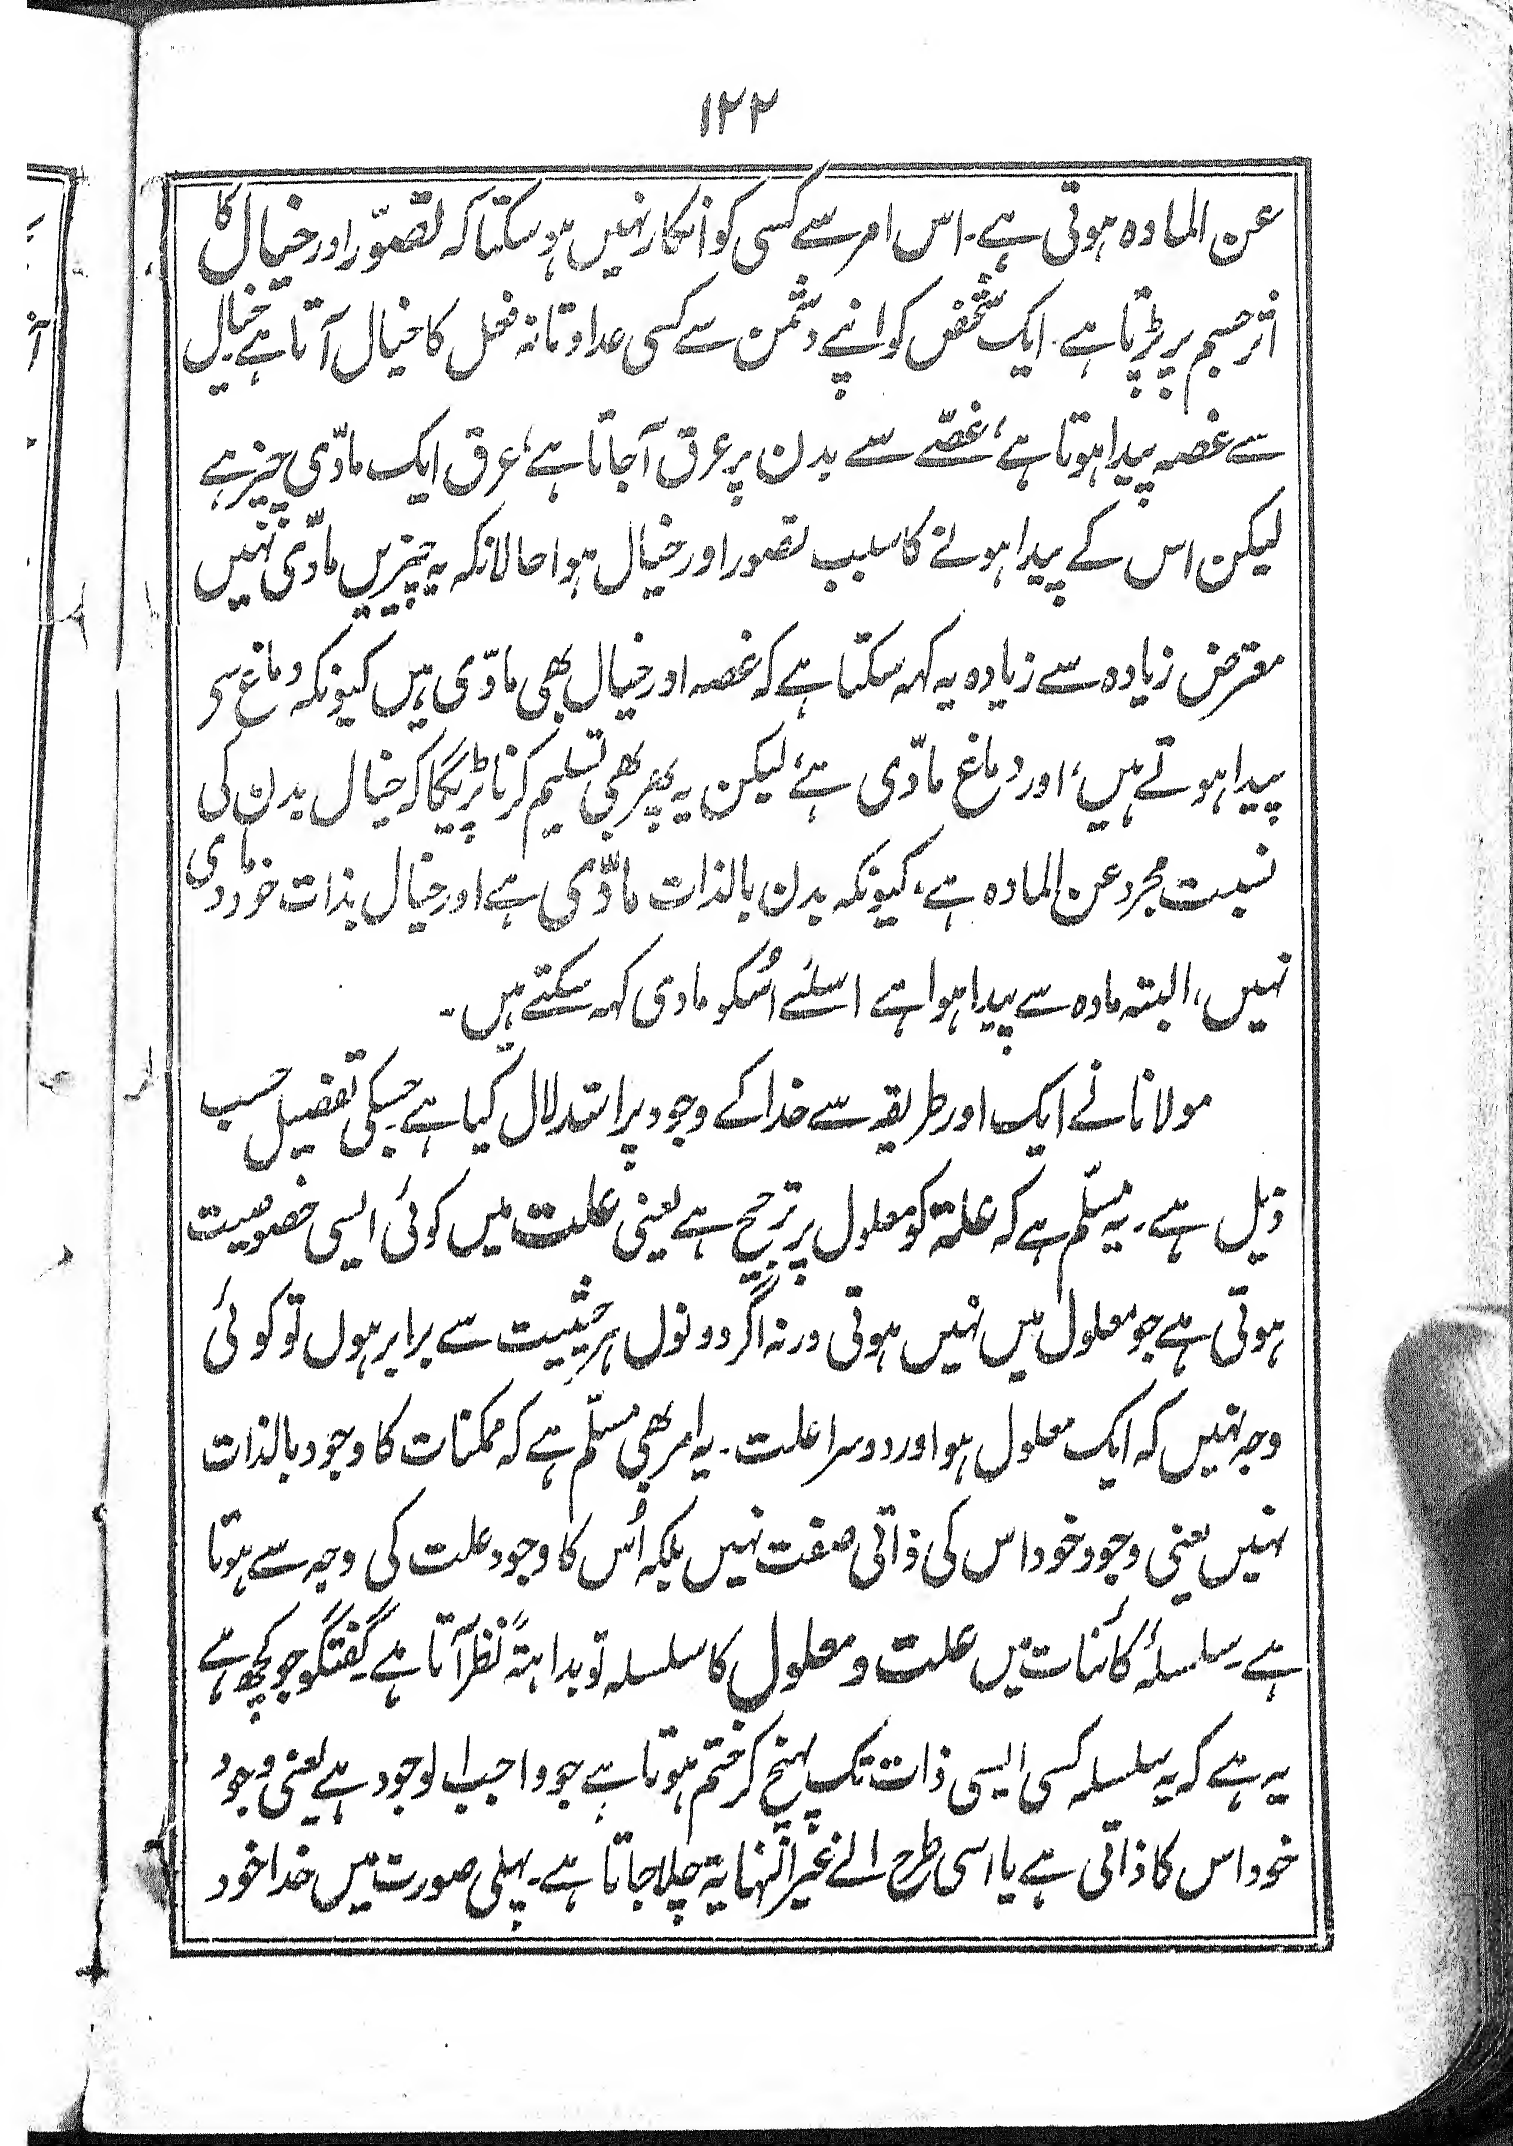 ۱۲۲
عن المادہ ہوتی ہے۔ اس امر سے کسی کو انکار نہیں ہو سکتا کہ تصوّر اور خیال کا
اثر جسم پر پڑتا ہے۔ ایک شخص کو اپنے دشمن سے کسی عداوتانہ فعل کا خیال آتا ہے خیال
سے غصہ پیدا ہوتا ہے، غصّے سے بدن پر عرق آجاتا ہے، عرق ایک مادّی چیز ہے
لیکن اس کے پیدا ہونے کا سبب تصور اور خیال ہوا حالانکہ یہ چیزیں مادّی نہیں
معترض زیادہ سے زیادہ یہ کہہ سکتا ہے کہ غصہ اور خیال بھی مادّی ہیں کیونکہ دماغ سی
پیدا ہوتے ہیں، اور دماغ مادّی ہے، لیکن یہ پھر بھی تسلیم کرنا پڑیگا کہ خیال بدن کی
نسبت مجرد عن المادہ ہے، کیونکہ بدن بالذات مادّی ہے اور خیال بذات خود مادی
نہیں، البتہ مادہ سے پیدا ہوا ہے اسلئے اُسکو مادی کہہ سکتے ہیں۔
مولانا نے ایک اور طریقہ سے خدا کے وجود پر استدلال کیا ہے جسکی تفصیل حسب
ذیل ہے۔ یہ مسلّم ہے کہ علۃ کو معلول پر ترجیح ہے یعنی علت میں کوئی ایسی خصوصیت
ہوتی ہے جو معلول میں نہیں ہوتی ورنہ اگر دونوں ہر حیثیت سے برابر ہوں تو کوئی
وجہ نہیں کہ ایک معلول ہو اور دوسرا علت۔ یہ امر بھی مسلّم ہے کہ ممکنات کا وجود بالذات
نہیں یعنی وجود خود اس کی ذاتی صفت نہیں بلکہ اُس کا وجود علت کی وجہ سے ہوتا
ہے۔ سلسلۂ کائنات میں علت و معلول کا سلسلہ تو بداہتہً نظر آتا ہے۔ گفتگو جو کچھ ہے
یہ ہے کہ یہ سلسلہ کسی ایسی ذات تک پہنچ کر ختم ہوتا ہے جو واجب الوجود ہے یعنی وجود
خود اس کا ذاتی ہے یا اسی طرح الےٰ غیر النہایۃ چلا جاتا ہے۔ پہلی صورت میں خدا خود